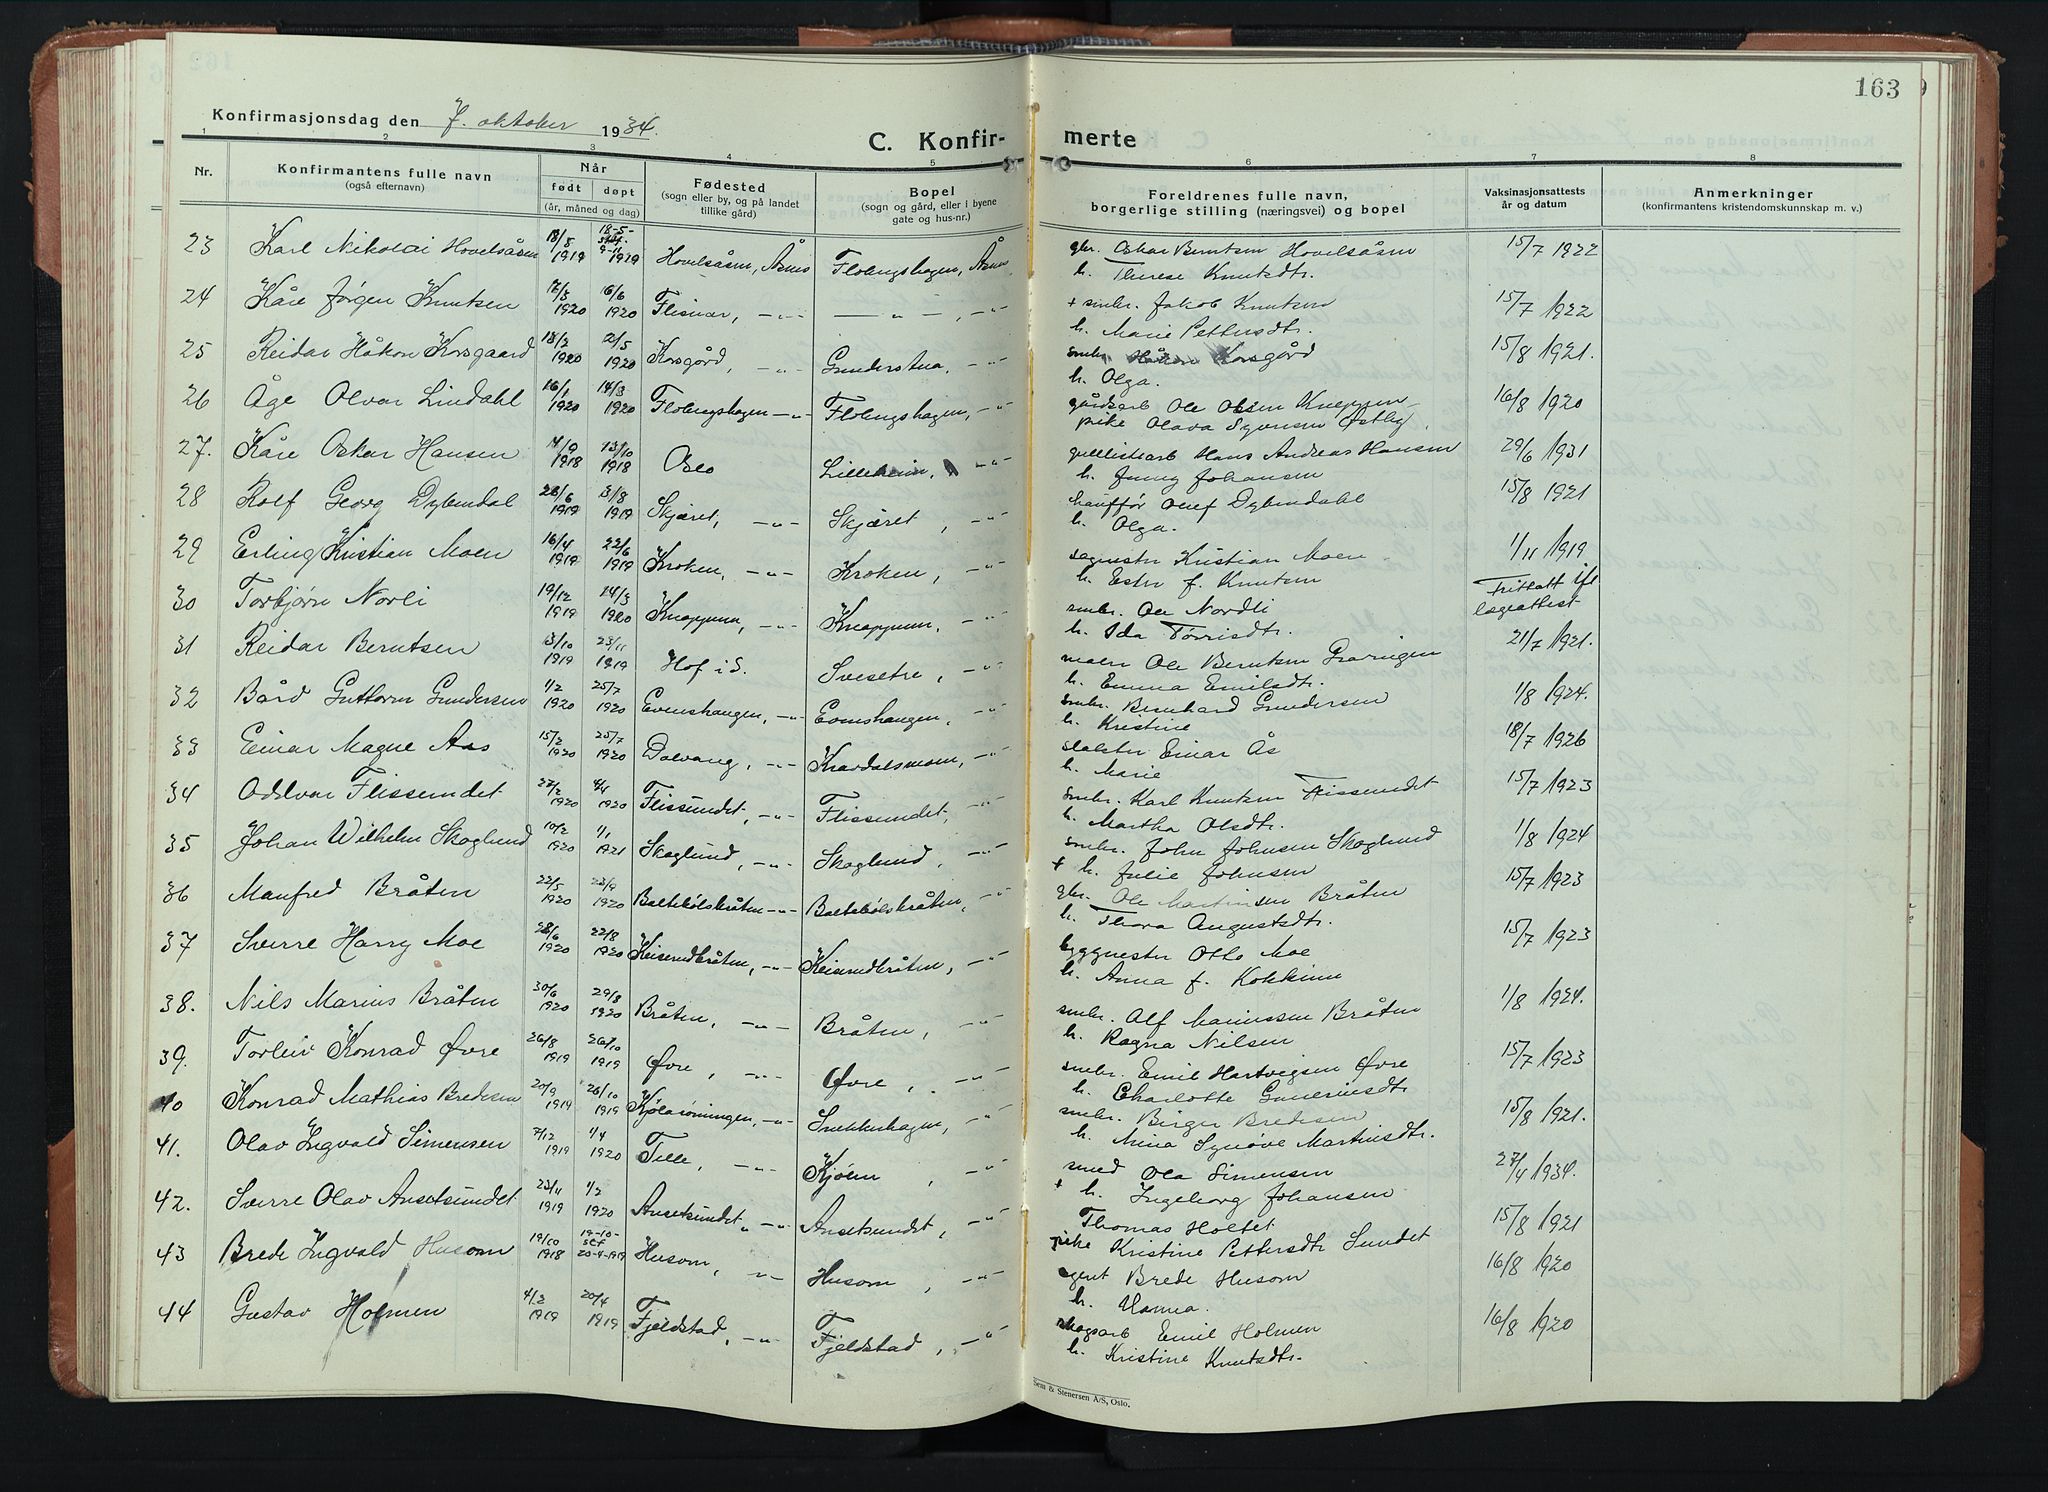 163
Konfirmasjonsdag den 7. oktober 1934.
C. Konfir- merte
1 2 3 4 5 6 7 8
Nr. Konfirmantens fulle navn (også efternavn) Når født døpt (år, måned og dag) Fødested (sogn eller by, og på landet tillike gård) Bopel (sogn og gård, eller i byene gate og hus-nr.) Foreldrenes fulle navn, borgerlige stilling (næringsvei) og bopel Vaksinasjonsattests år og datum Anmerkninger (konfirmantens kristendomskunnskap m. v.)
23 Karl Nikolai Hovelsåsen 18/8 1919 18-5- stadf. 9-11 1919 Hovelsåsen, Åsnes Flolengshagen, Åsnes gbr. Oskar Berntsen Hovelsåsen 15/7 1922
h. Therese Knutsdtr.
24 Kåre Jørgen Knutsen 12/3 1920 16/6 1920 Flisnar, -"- -"-, -"- + smbr. Jakob Knutsen 15/7 1922
h. Marie Pettersdtr.
25 Reidar Håkon Korsgaard 18/2 1920 2/5 1920 Korsgård, -"- Gunderstua, -"- smbr. Håkon Korsgård 15/8 1921.
h. Olga.
26 Åge Olvar Lindahl 16/1 1920 14/3 1920 Flolengshagen -"- Flolengshagen, -"- gårdsarb Ole Olsen Kneppen 16/8 1920
pike Olava Syversen Østby.
27. Kåre Oskar Hansen 17/9 1918 13/10 1918 Oslo Lilleheim, -"- gullistearb Hans Andreas Hansen 29/6 1931
h. Jenny Johansen
28 Rolf Georg Dybendal 28/6 1919 3/8 1919 Skjæret, -"- Skjæret, -"- chauffør Olef Dybendahl 15/8 1921
h. Olga.
29 Erling Kristian Moen 16/4 1919 22/6 1919 Kroken, -"- Kroken, -"- sagmester Kristian Moen 1/11 1919
h. Ester f. Knutsen
30 Torbjørn Norli 19/12 1919 14/3 1920 Knappum, -"- Knappum, -"- smbr. Ole Nordli Fritatt ifl lægeattest
h. Ida Tørrisdtr.
31 Reidar Berntsen 13/10 1919 23/11 1919 Hof i S. Svesetre, -"- maler Ole Berntsen Graringen 21/7 1921.
h. Emma Emilsdtr.
32 Bård Guttorm Gundersen 1/2 1920 25/7 1920 Evenshaugen, -"- Evenshaugen, -"- smbr. Bernhard Gundersen 1/8 1924.
h. Kristine
33 Einar Magne Aas 15/2 1920 25/7 1920 Dalvang, -"- Kvardalsmoen, -"- slakter Einar Ås 18/7 1926
h. Marie
34 Oddvar Flissundet 27/2 1920 4/4 1920 Flissundet, -"- Flissundet, -"- smbr. Karl Knutsen Flissundet 15/7 1923
h. Martha Olsdtr.
35 Johan Wilhelm Skoglund 10/2 1920 1/1 1921 Skoglund, -"- Skoglund, -"- smbr. John Johnsen Skoglund 1/8 1924
+ h. Julie Johnsen
36 Manfred Bråten 22/5 1920 23/9 1920 Baltebølsbråten -"- Baltebølsbråten, -"- gbr. Ole Martinsen Bråten 15/7 1923
h. Thora Augustsdtr.
37 Sverre Harry Moe 28/6 1920 22/8 1920 Keiserudbråten, -"- Keiserudbråten, -"- byggmester Otto Moe 15/7 1923
h. Anna f. Kokkinn
38. Nils Marius Bråten 30/6 1920 29/8 1920 Bråten, -"- Bråten, -"- smbr. Alf Mariussen Bråten 1/8 1924.
h. Ragna Nilsen
39. Torleiv Konrad Øvre 26/8 1919 26/10 1919 Øvre, -"- Øvre, -"- smbr. Emil Hartvigsen Øvre 15/7 1923
h. Charlotte Guneriusdtr
40 Konrad Mathias Bredesen 20/9 1919 26/10 1919 Kjølarømningen, -"- Snekkerhagen, -"- smbr. Birger Bredesen 15/8 1921.
h. Mina Synøve Martinsdtr.
41. Olav Ingvald Simensen 7/12 1919 1/4 1920 Telle, -"- Kjølen, -"- smed Ola Simensen 27/4 1934.
+ h. Ingeborg Johansen
42. Sverre Olav Ansetsundet 23/11 1919 1/2 1920 Ansetsundet, -"- Ansetsundet, -"- Thomas Holtet 15/8 1921
pike Kristine Pettersdtr Sundet
43 Brede Ingvald Husom 19/10 1918 19-10- stf 20-4-1919 Husom, -"- Husom, -"- agent Brede Husom 16/8 1920
h. Hanna.
44 Gustav Holmen 4/2 1919 20/4 1919 Fjeldstad, -"- Fjeldstad, -"- skogsarb Emil Holmen 16/8 1920
h. Kristine Knutsdtr.
Sem & Stenersen A/S, Oslo.